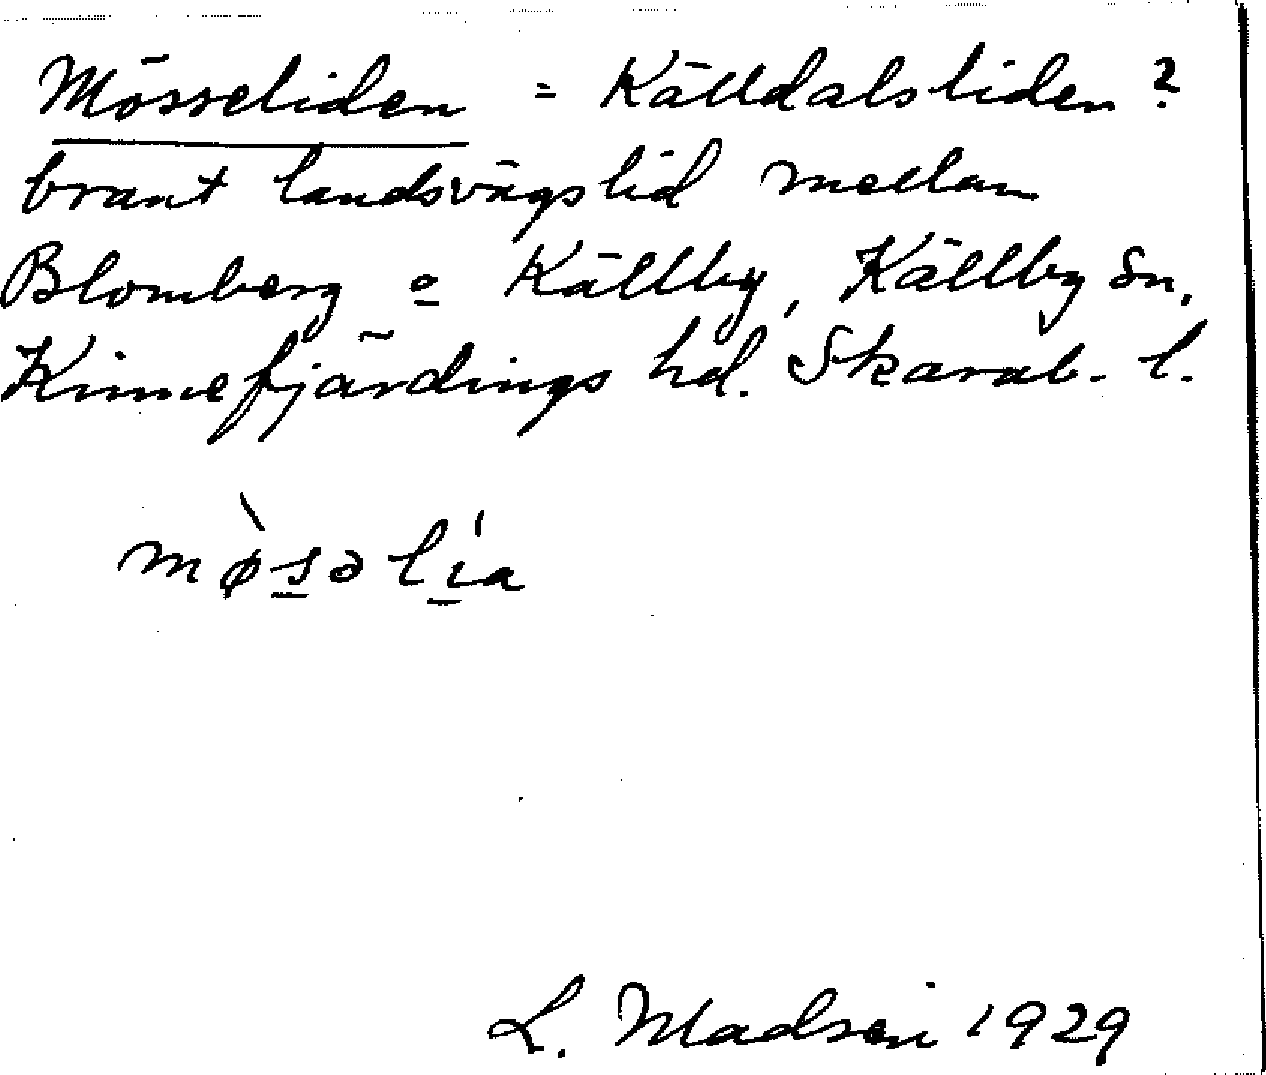 Mösseliden = Källdalsliden?
brant landsvägslid mellan
Blomberg o Källby, Källby sn,
Kinnefjärdings hd. Skarab. l.
mø̀səlía
L. Madsen 1929